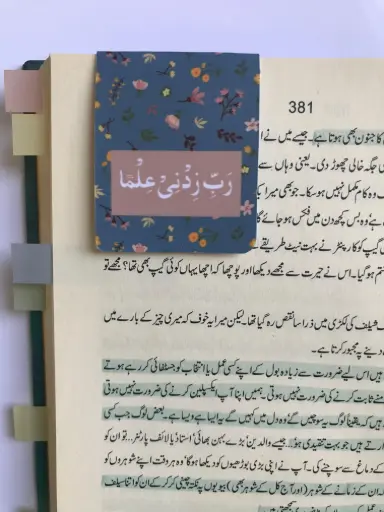 381
رَبِّ زِدْنِیْ عِلْمًا
کا جنون بھی ہوتا ہے۔ جیسے میں نے ا
ی جگہ خالی چھوڑ دی۔ یعنی وہاں سے
وہ کام مکمل نہیں ہو سکا۔ جو بھی میرا
ہے وہ بس کچھ دن میں فکس ہو جائے گا
گیپ کو کارپینٹر نے بہت نیٹ طریقے
ختم ہو گیا۔ اس نے حیرت سے مجھے دیکھا اور پوچھا کہ اچھا یہاں کوئی گیپ بھی تھا؟ مجھے تو
شیلف کی لکڑی میں ذرا سا نقص رہ گیا تھا۔ لیکن میرا یہ خوف کہ میری چیز کے بارے میں
دینے پر مجبور کرتا ہے۔
ہیں اس لیے ضرورت سے زیادہ بول کے اپنے کسی عمل یا انتخاب کو جسٹفائی کر رہے ہوتے
منے ثابت کرنے کی ضرورت نہیں ہوتی۔ ہمیں اپنا آپ ایکسپلین کرنے کی ضرورت نہیں ہوتی
ہیں کہ یقیناً لوگ یہ سوچیں گے، وہ دل میں کہیں گے یہ ایسا ہے ویسا ہے۔ بعض لوگ جب کسی
ارتے ہیں جو بہت تنقیدی ہو.. جیسے والدین' بڑے بہن بھائی' استاد یا لائف پارٹنر... تو ان کو
کے دماغ سے سوچنے کی۔ آپ نے اپنی بڑی بوڑھیوں کو دیکھا ہوگا' وہ ہر وقت اپنے شوہروں کو
ان کے زمانے کے شوہر (اور آج کل کے شوہر بھی) بیویوں پہ نکتہ چینی کر کر کے ان کو اتنا سیلف